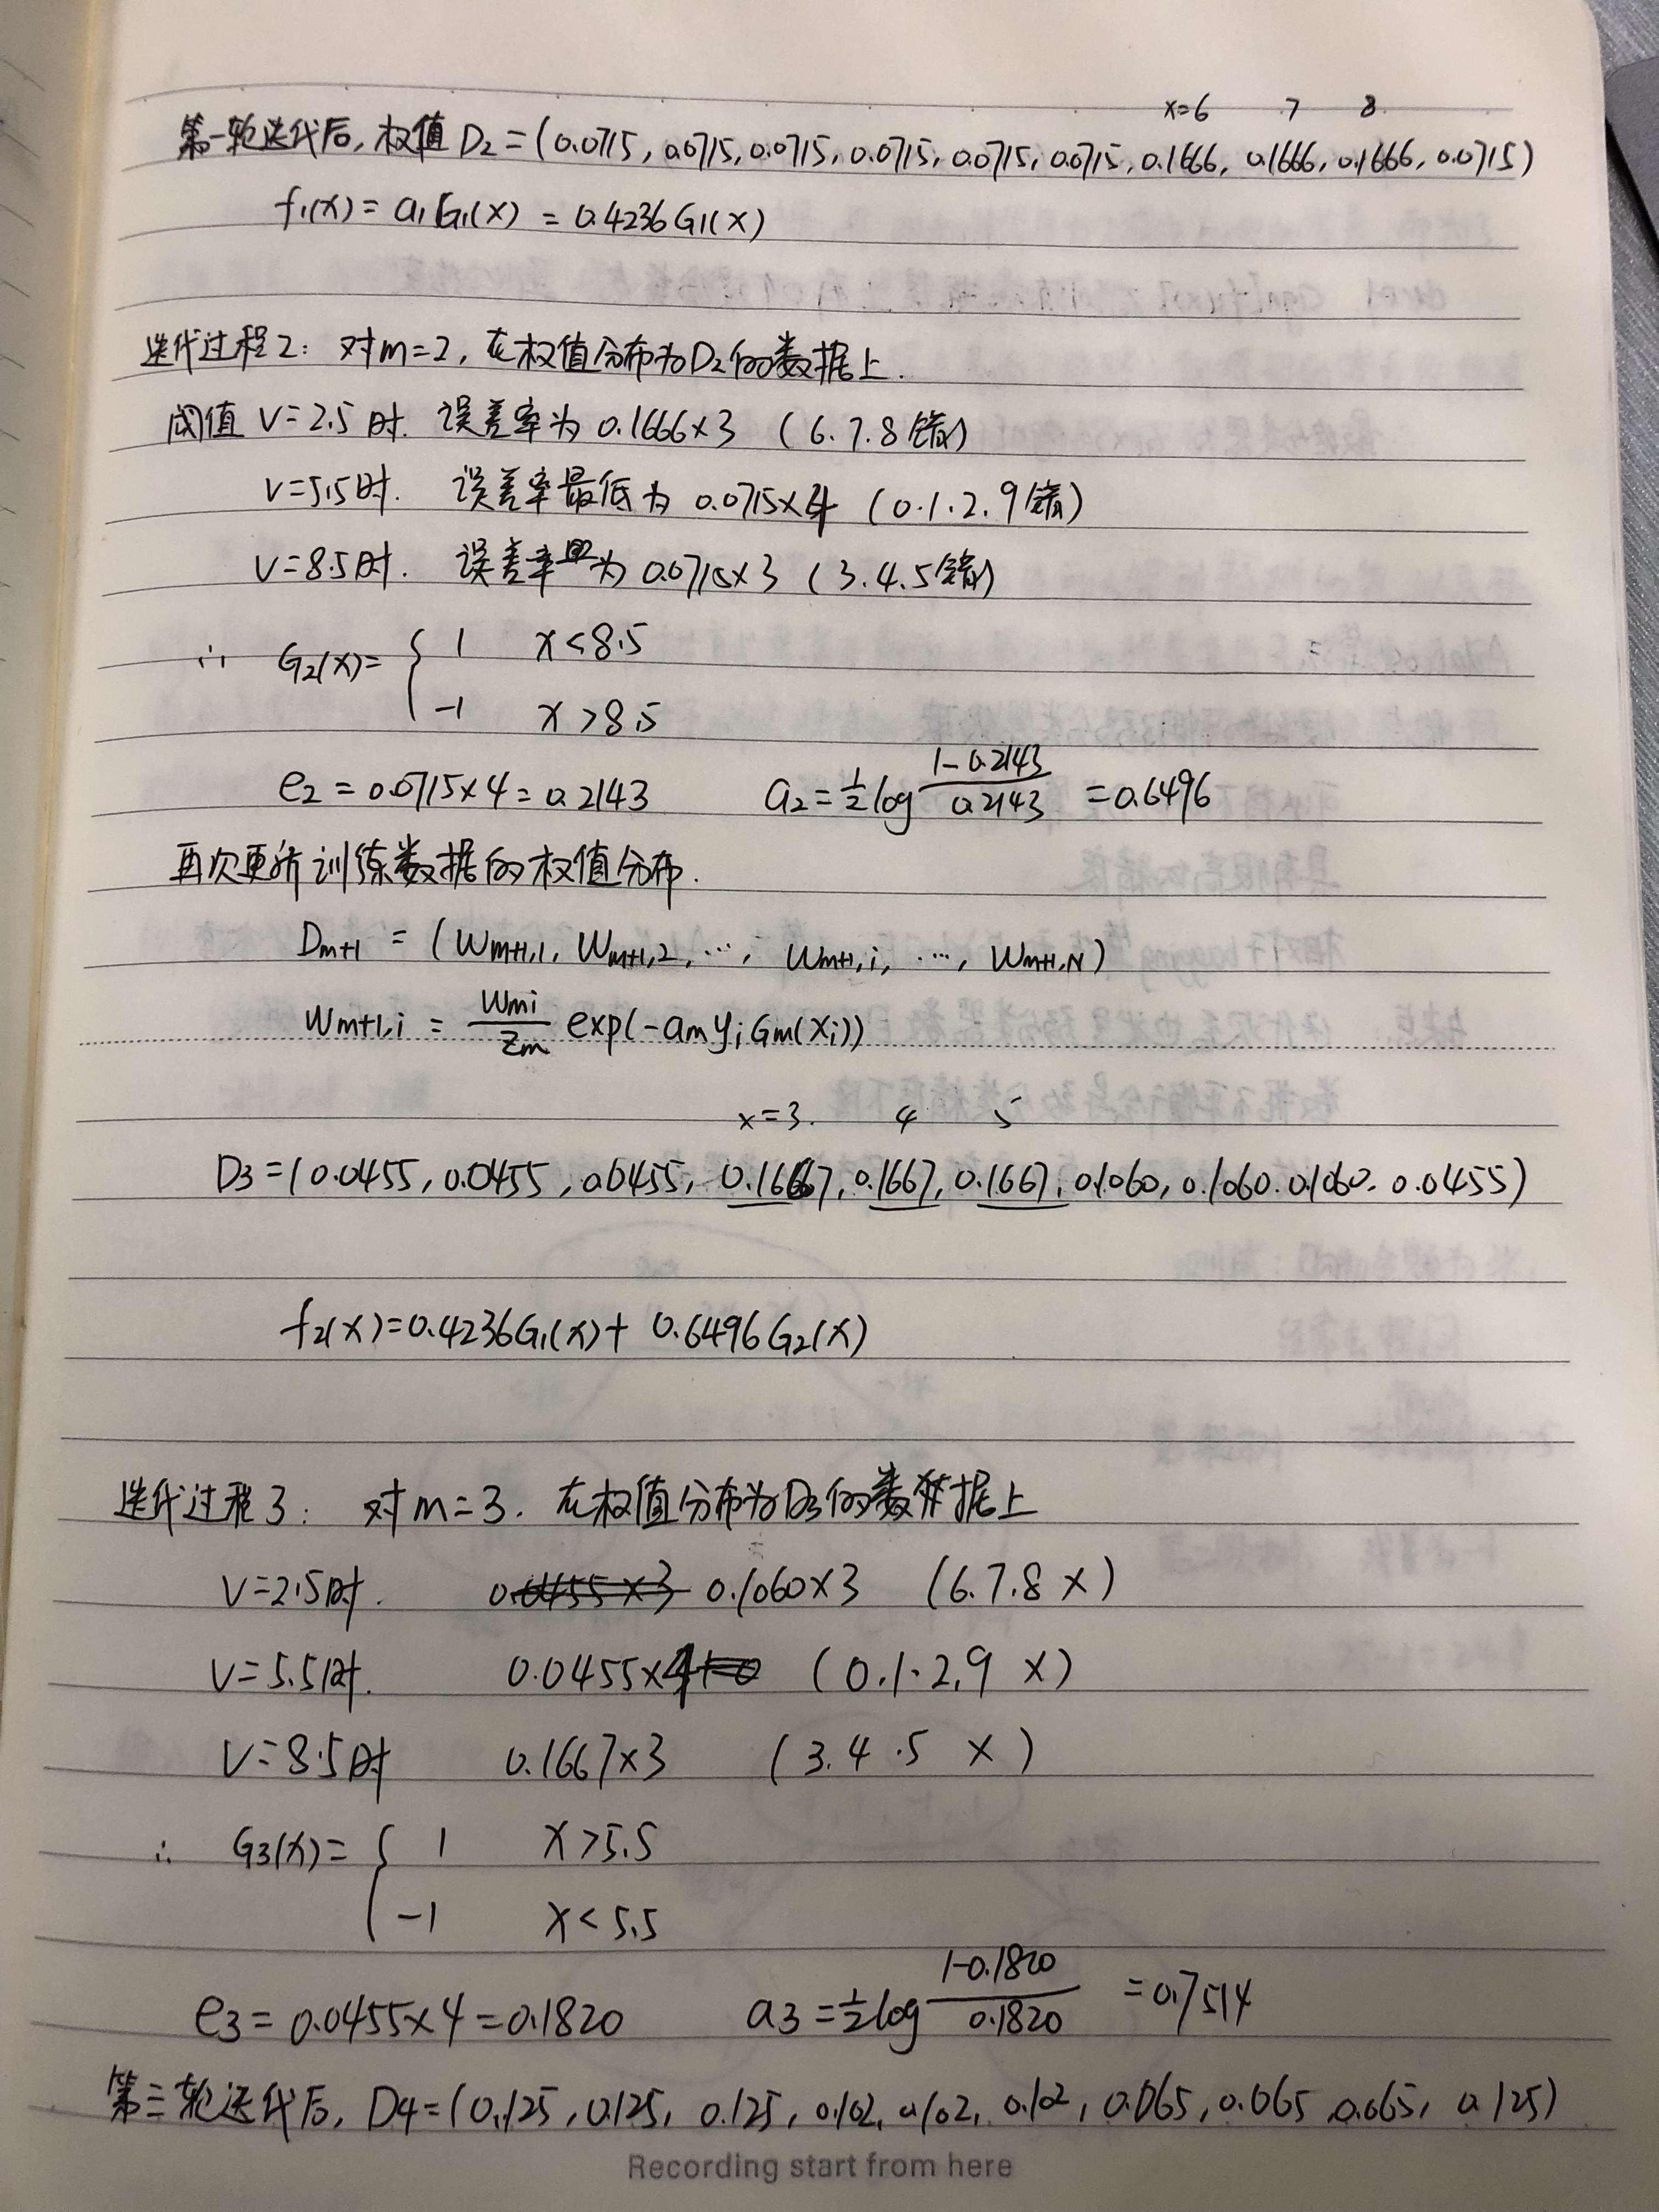 x=6 7 8
第一轮迭代后, 权值 D2 = (0.0715, 0.0715, 0.0715, 0.0715, 0.0715, 0.0715, 0.1666, 0.1666, 0.1666, 0.0715)
f1(x) = a1G1(x) = 0.4236G1(x)
迭代过程2: 对m=2, 在权值分布为D2的数据上.
阈值 v=2.5时. 误差率为 0.1666×3 (6.7.8错)
v=5.5时. 误差率最低为 0.0715×4 (0.1.2.9错)
v=8.5时. 误差率为 0.0715×3 (3.4.5错)
∴ G2(x)= { 1 x<8.5
-1 x>8.5
e2 = 0.0715×4 = 0.2143 a2 = ½log (1-0.2143)/0.2143 = 0.6496
再次更新训练数据的权值分布.
Dm+1 = (Wm+1,1, Wm+1,2, ..., Wm+1,i, ..., Wm+1,N)
Wm+1,i = Wmi/Zm exp(-am yi Gm(xi))
x=3. 4 5
D3=(0.0455, 0.0455, 0.0455, 0.1667, 0.1667, 0.1667, 0.1060, 0.1060. 0.1060. 0.0455)
f2(x)=0.4236G1(x)+ 0.6496G2(x)
迭代过程3: 对m=3. 在权值分布为D3的数据上
v=2.5时. 0.0455×3 0.1060×3 (6.7.8 ×)
v=5.5时. 0.0455×4 (0.1.2.9 ×)
v=8.5时 0.1667×3 (3.4.5 ×)
∴ G3(x)= { 1 x>5.5
-1 x<5.5
e3 = 0.0455×4 = 0.1820 a3 = ½log (1-0.1820)/0.1820 = 0.7514
第三轮迭代后, D4=(0.125, 0.125, 0.125, 0.102, 0.102, 0.102, 0.065, 0.065, 0.065, 0.125)
Recording start from here